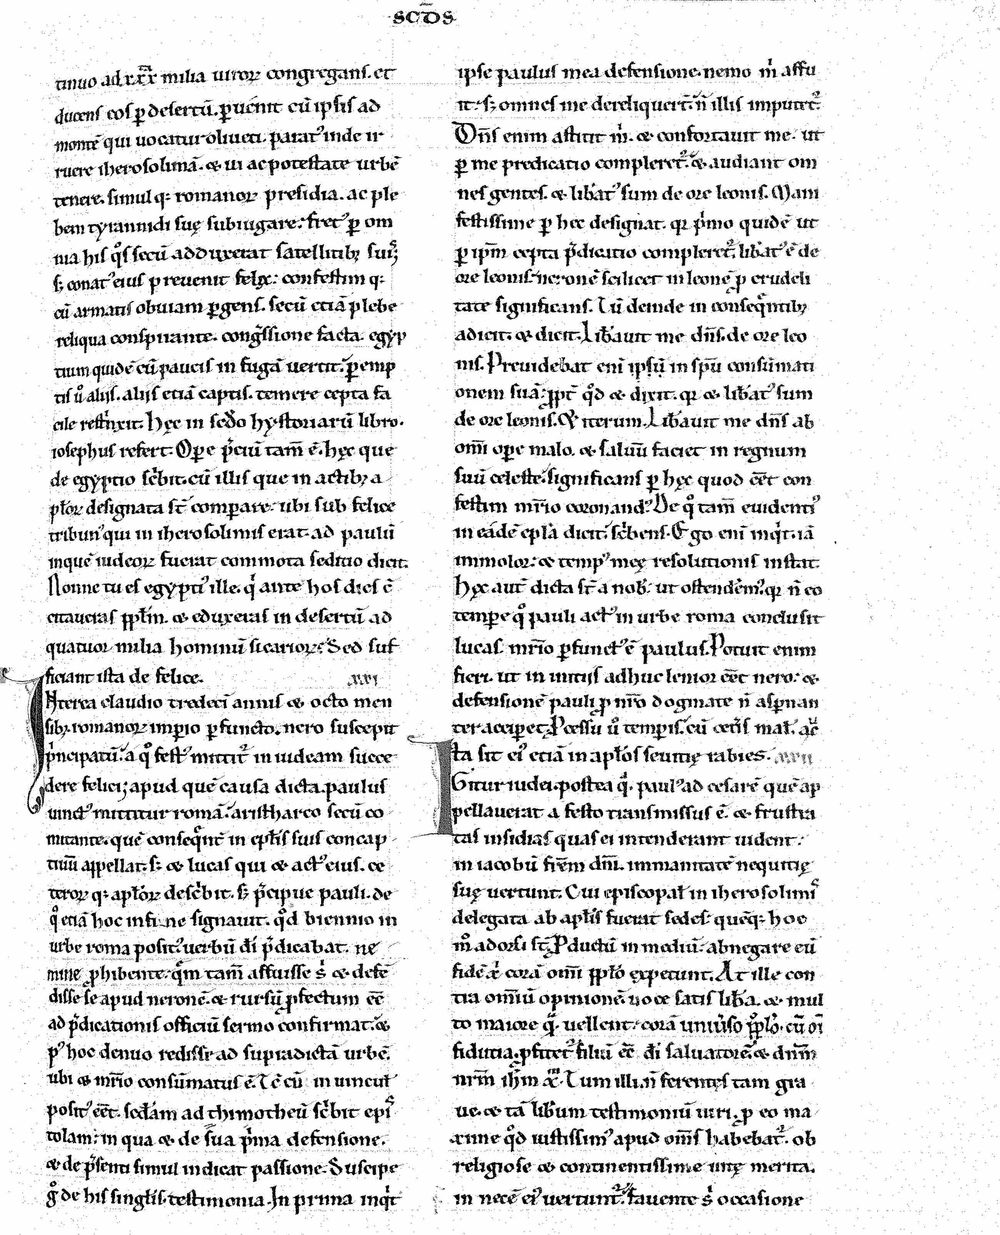 SCD̄S
tinuo ad xxx milia uiroꝝ congregans. et
ducens eos ꝑ desertū. ꝑuenit cū ipsis ad
montē qui uocatur oliueti. paratꝰ inde ir
ruere iherosolimā. & ui ac potestate urbē
tenere. simul qꝫ romanoꝝ presidia. ac ple
bem tyrannidi suę subiugare. fretꝰ ꝑ om
nia his qͦs secū adduxerat satellitibꝫ suis.
sꝫ conatꝰ eius preuenit felix. confestim qꝫ
cū armatis obuiam ꝑgens. secū etiā plebe
reliqua conspirante. cong̃ssione facta. egyp
tium quidē cū paucis in fugā uertit. ꝑemp
tis ū aliis. aliis etiā captis. temere cepta fa
cile restīxit. Hęc in scđo hystoriarū libro.
iosephus refert. Oꝑe p̄ciū tam̄ ē. hęc que
de egyptio scͥbit. cū illis que in actibꝫ a
pl̄oꝝ designata st̄ comparare. ubi sub felice
tribunꝰ qui in iherosolimis erat. ad paulū
inquē iudeoꝝ fuerat commota seditio dicit.
Nonne tu es egyptiꝰ ille. qͥ ante hos dies c̄
citaueras ppl̄m. & eduxeras in desertū ad
quatuor milia hominū sicarioꝝ. Sed suf
ficiant ista de felice. xxi
INterea claudio tredeci annis & octo men
sibꝫ romanoꝝ imꝑio ꝑfuncto. nero suscepit
pͥncipatū. a qͦ festꝰ mittit᷑ in iudeam succe
dere felici. apud quē causa dicta. paulus
uinctꝰ mittitur romā. aristharco secū co
mitante. quē conseqͥnt᷑ in ep̄lis suis concap
tiuū appellat. sꝫ & lucas qui & actꝰ eius. ce
teroꝝ qꝫ apl̄oꝝ descͥbit. sꝫ p̄cipue pauli. de
qͦ etiā hoc in fine signauit. qͦd biennio in
urbe roma positꝰ uerbū dī p̄dicabat. ne
mine ꝓhibente. qͣm tam̄ affuisse s̄ & defē
disse se apud neronē. & rursū ꝓfectum eē
ad p̄dicationis officiū sermo confirmat. &
pꝰ hoc denuo redisse ad supradictā urbē.
ubi & mr̄io consūmatus ē. Tc̄ cū in uincul̄
positꝰ eēt. scđam ad thimotheū scͥbit epis
tolam. in qua & de sua pͥma defensione.
& de p̄senti simul indicat passione. Suscipe
gͦ de his singl̄is testimonia. In prima inqͥt
ipse paulus mea defensione. nemo m̄ affu
it. sꝫ omnes me dereliquerт̄. n̄ illis imputet᷑.
Dn̄s enim astitit m̄. & confortauit me. ut
ꝑ me predicatio compleret᷑. & audiant om
nes gentes. & libatꝰ sum de ore leonis. Mani
festissime ꝑ hęc designat. qꝛ pͥmo quidē ut
ꝑ ipm̄ cepta p̄dicatio compleret᷑. libatꝰ ē de
ore leonis. neronē scilicet in leonē ꝓ crudeli
tate significans. Tū deinde in conseqͣntibꝫ
adicit. & dicit. Libauit me dn̄s. de ore leo
nis. Preuidebat eni ipsū in spū consūmati
onem suā. ꝓpt̄ qͦd & dixit. qꝛ & libatꝰ sum
de ore leonis. Et iterum. Libauit me dn̄s ab
om̄i oꝑe malo. & saluū faciet in regnum
suū celeste. significans ꝑ hęc quod eēt con
festim mr̄io coronandꝰ. De qͦ tam̄ euidentiꝰ
in eadē epl̄a dicit. scͥbens. Ego eni inqͥt. iā
immolor. & tempꝰ meę resolutionis instat.
Hęc aut̄ dicta st̄ a nob. ut ostendem̄ꝰ. qꝛ n̄ eo
tempore qͦ pauli actꝰ in urbe roma conclusit
lucas. mr̄io ꝑfunctꝰ ē paulus. Potuit enim
fieri. ut in initiis adhuc lenior eēt nero. &
defensionē pauli ꝓ nr̄o dogmate n̄ aspernan
ter acciperet. Pcessu ū tempis. cū cet̄is mal̄. ac̄
ta sit eiꝰ etiā in apl̄os seuitię rabies. xxii
IGitur iudei. postea qͣ paulꝰ ad cesarē quē ap
pellauerat a festo transmissus ē. & frustra
tas insidias quas ei intenderant uident.
in iacobū fr̄em dn̄i. immanitatē nequitię
suę uertunt. Cui episcopal̄ in iherosolimis
delegata ab apl̄is fuerat sedes. quēqꝫ hoc
m̄ adorsi st̄. Pductū in mediū. abnegare eū
fidē xͥ corā om̄i ppl̄o expetunt. At ille con
tra omīū opinionē uoce satis libā. & mul
to maiore qͣ uellent. corā uniuso ppl̄o. cū oī
fiducia. ꝓfitet᷑ filiū eē dī saluatorē. & dnm̄
nrm̄ ihm̄ xm̄. Tum illi. n̄ ferentes tam gra
ue. & tā libum testimoniū uiri. ꝓ eo ma
xime qͦd iustissimꝰ apud om̄s habebat᷑. ob
religiose & continentissime uitę merita.
in necē eiꝰ uertunt᷑. fauente s̄ occasione